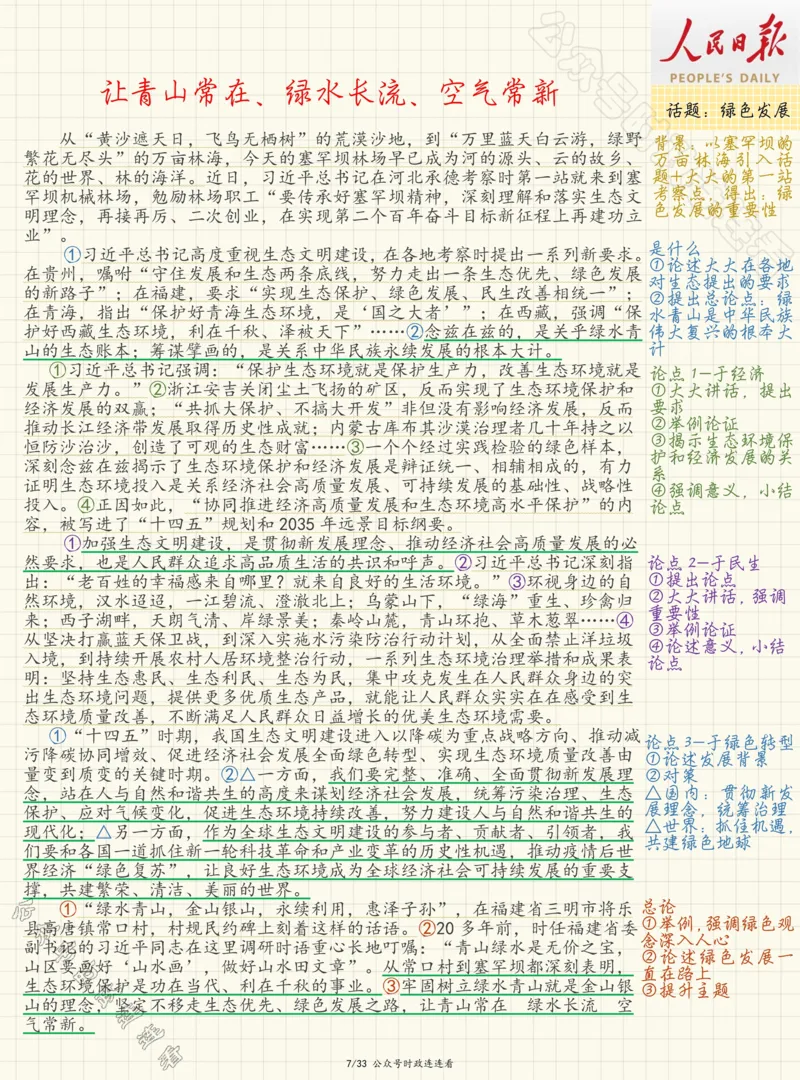 人民日报
PEOPLE'S DAILY
话题：绿色发展
让青山常在、绿水长流、空气常新
从“黄沙遮天日，飞鸟无栖树”的荒漠沙地，到“万里蓝天白云游，绿野
繁花无尽头”的万亩林海，今天的塞罕坝林场早已成为河的源头、云的故乡、
花的世界、林的海洋。近日，习近平总书记在河北承德考察时第一站就来到塞
罕坝机械林场，勉励林场职工“要传承好塞罕坝精神，深刻理解和落实生态文
明理念，再接再厉、二次创业，在实现第二个百年奋斗目标新征程上再建功立
业”。
①习近平总书记高度重视生态文明建设，在各地考察时提出一系列新要求。
在贵州，嘱咐“守住发展和生态两条底线，努力走出一条生态优先、绿色发展
的新路子”；在福建，要求“实现生态保护、绿色发展、民生改善相统一”；
在青海，指出“保护好青海生态环境，是‘国之大者’”；在西藏，强调“保
护好西藏生态环境，利在千秋、泽被天下”……②念兹在兹的，是关乎绿水青
山的生态账本；筹谋擘画的，是关系中华民族永续发展的根本大计。
①习近平总书记强调：“保护生态环境就是保护生产力，改善生态环境就是
发展生产力。”②浙江安吉关闭尘土飞扬的矿区，反而实现了生态环境保护和
经济发展的双赢；“共抓大保护、不搞大开发”非但没有影响经济发展，反而
推动长江经济带发展取得历史性成就；内蒙古库布其沙漠治理者几十年持之以
恒防沙治沙，创造了可观的生态财富……③一个个经过实践检验的绿色样本，
深刻念兹在兹揭示了生态环境保护和经济发展是辩证统一、相辅相成的，有力
证明生态环境投入是关系经济社会高质量发展、可持续发展的基础性、战略性
投入。④正因如此，“协同推进经济高质量发展和生态环境高水平保护”的内
容，被写进了“十四五”规划和2035年远景目标纲要。
①加强生态文明建设，是贯彻新发展理念、推动经济社会高质量发展的必
然要求，也是人民群众追求高品质生活的共识和呼声。②习近平总书记深刻指
出：“老百姓的幸福感来自哪里？就来自良好的生活环境。”③环视身边的自
然环境，汉水迢迢，一江碧流、澄澈北上；乌蒙山下，“绿海”重生、珍禽归
来；西子湖畔，天朗气清、岸绿景美；秦岭山麓，青山环抱、草木葱翠……④
从坚决打赢蓝天保卫战，到深入实施水污染防治行动计划，从全面禁止洋垃圾
入境，到持续开展农村人居环境整治行动，一系列生态环境治理举措和成果表
明：坚持生态惠民、生态利民、生态为民，集中攻克发生在人民群众身边的突
出生态环境问题，提供更多优质生态产品，就能让人民群众实实在在感受到生
态环境质量改善，不断满足人民群众日益增长的优美生态环境需要。
①“十四五”时期，我国生态文明建设进入以降碳为重点战略方向、推动减
污降碳协同增效、促进经济社会发展全面绿色转型、实现生态环境质量改善由
量变到质变的关键时期。②△一方面，我们要完整、准确、全面贯彻新发展理
念，站在人与自然和谐共生的高度来谋划经济社会发展，统筹污染治理、生态
保护、应对气候变化，促进生态环境持续改善，努力建设人与自然和谐共生的
现代化；△另一方面，作为全球生态文明建设的参与者、贡献者、引领者，我
们要和各国一道抓住新一轮科技革命和产业变革的历史性机遇，推动疫情后世
界经济“绿色复苏”，让良好生态环境成为全球经济社会可持续发展的重要支
撑，共建繁荣、清洁、美丽的世界。
①“绿水青山，金山银山，永续利用，惠泽子孙”，在福建省三明市将乐
县高唐镇常口村，村规民约碑上刻着这样的话语。②20多年前，时任福建省委
副书记的习近平同志在这里调研时语重心长地叮嘱：“青山绿水是无价之宝，
山区要画好‘山水画’，做好山水田文章”。从常口村到塞罕坝都深刻表明，
生态环境保护是功在当代、利在千秋的事业。③牢固树立绿水青山就是金山银
山的理念，坚定不移走生态优先、绿色发展之路，让青山常在 绿水长流 空
气常新。
背景：以塞罕坝的
万亩林海引入话
题+大大的第一站
考察点，得出：绿
色发展的重要性
是什么
①论述大大在各地
对生态提出的要求
②提出总论点：绿
水青山是中华民族
伟大复兴的根本大
计
论点1—于经济
①大大讲话，提出
要求
②举例论证
③揭示生态环境保
护和经济发展的关
系
④强调意义，小结
论点
论点2—于民生
①提出论点
②大大讲话，强调
重要性
③举例论证
④论述意义，小结
论点
论点3—于绿色转型
①论述发展背景
②对策
△国内：贯彻新发
展理念，统筹治理
△世界：抓住机遇，
共建绿色地球
总论
①举例，强调绿色观
念深入人心
②论述绿色发展一
直在路上
③提升主题
7/33 公众号时政连连看